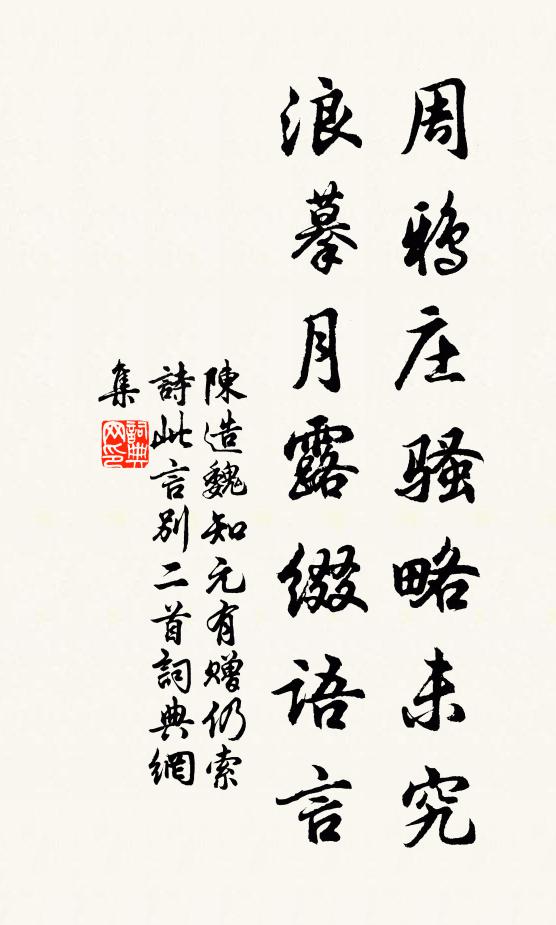 周鴉庄騷略未究
浪摹月露綴語言
陳造魏知元有贈仍索
詩此言別二首詞典網
集
詞典
网印